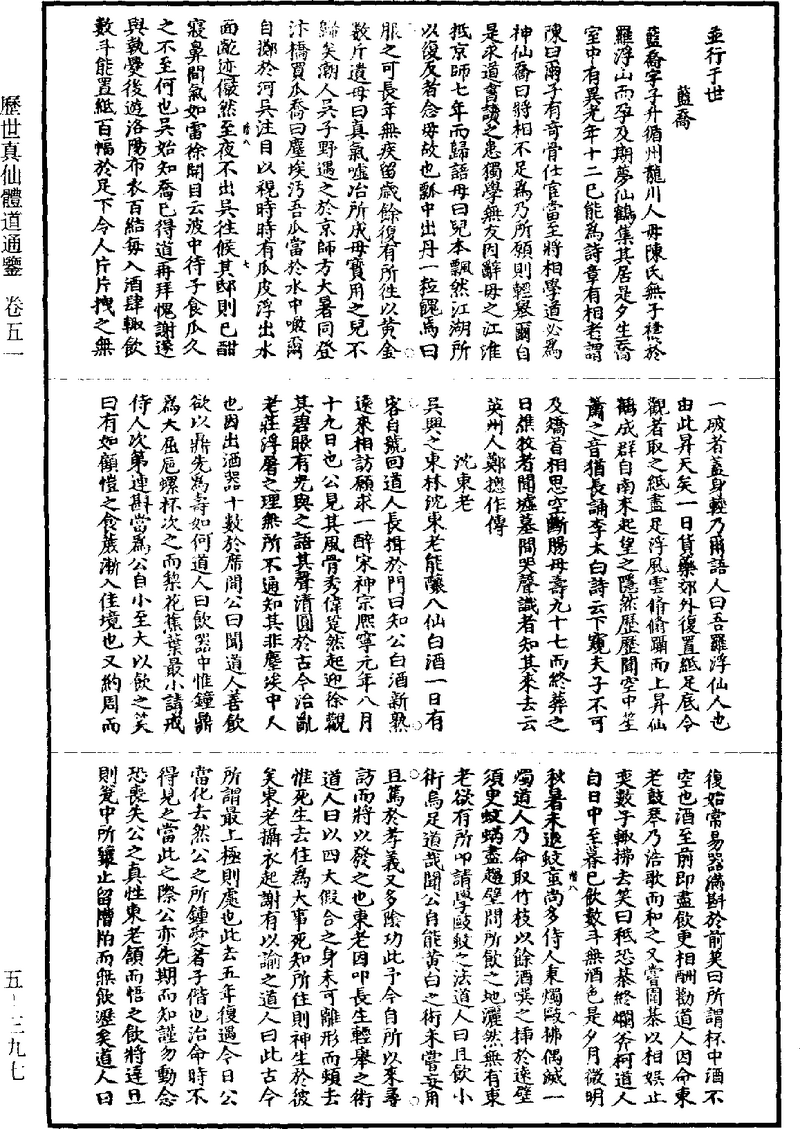 歷世真仙體道通鑒 卷五一
五—三九七
並行于世
藍喬
藍喬字子升循州龍川人母陳氏無子禱於
羅浮山而孕及期夢仙鶴集其居是夕生喬
室中有異光年十二已能為詩章有相者謂
陳曰爾子有奇骨仕宦當至將相學道必為
神仙喬曰將相不足為乃所願則輕舉爾自
是求道書讀之患獨學無友因辭母之江淮
抵京師七年而歸語母曰兒本飄然江湖所
以復反者念母故也瓢中出丹一粒餽焉曰
服之可長年無疾留歲餘復有所往以黃金
數斤遺母曰真氣噓冶所成母寶用之兒不
歸矣潮人吳子野遇之於京師方大暑同登
汴橋買瓜喬曰塵埃汚吾瓜當於水中噉爾
自擲於河吳注目以視時時有瓜皮浮出水
面䶢迹儼然至夜不出吳往候其邸則已酣
寢鼻間氣如雷徐開目云波中待子食瓜久
之不至何也吳始知喬已得道再拜愧謝遂
與執爨後遊洛陽布衣百結每入酒肆輒飲
數斗能置紙百幅於足下令人片片拽之無
一破者蓋身輕乃爾語人曰吾羅浮仙人也
由此昇天矣一日貨藥郊外復置紙足底令
觀者取之紙盡足浮風雲翛翛躡而上昇仙
鶴成群自南來迎望之隱然歷歷聞空中笙
簫之音猶長誦李太白詩云下窺夫子不可
及矯首相思空斷腸母壽九十七而終葬之
日樵牧者聞墟墓間哭聲識者知其來去云
英州人鄭摠作傳
沈東老
吳興之東林沈東老能釀八仙白酒一日有
客自號回道人長揖於門曰知公白酒新熟
遠來相訪願求一醉宋神宗熙寧元年八月
十九日也公見其風骨秀偉跫然起迎徐觀
其碧眼有光與之語其聲清圓於古今治亂
老莊浮屠之理無所不通知其非塵埃中人
也因出酒器十數於席間公曰聞道人善飲
欲以鼎先為壽如何道人曰飲器中惟鐘鼎
為大屈卮螺杯次之而梨花蕉葉最小請戒
侍人次第連斟當為公自小至大以飲之笑
曰有如顧愷之食蔗漸入佳境也又約周而
復始常易器滿斟於前笑曰所謂杯中酒不
空也酒至前即盡飲更相酬勸道人因命東
老鼓琴乃浩歌而和之又嘗圍棊以相娛止
奕數子輒拂去笑曰秪恐棊終爛斧柯道人
自日中至暮已飲數斗無酒色是夕月微明
秋暑未退蚊蚉尚多侍人東燭毆拂偶滅一
燭道人乃命取竹枝以餘酒噀之插於遠壁
須臾蚊蚋盡趨壁間所飲之地灑然無有東
老欲有所叩請學毆蚊之法道人曰且飲小
術烏足道哉聞公自能黃白之術未嘗妄用
且篤於孝義又多陰功此予今自所以來尋
訪而將以發之也東老因叩長生輕舉之術
道人曰以四大假合之身未可離形而頓去
惟死生去住為大事死知所往則神生於彼
矣東老攝衣起謝有以諭之道人曰此古今
所謂最上極則處也此去五年復遇今日公
當化去然公之所鍾愛者子偕也治命時不
得見之當此之際公亦先期而知謹勿動念
恐喪失公之真性東老頷而悟之飲將達旦
則瓮中所釀止留糟粕而無飲瀝矣道人曰